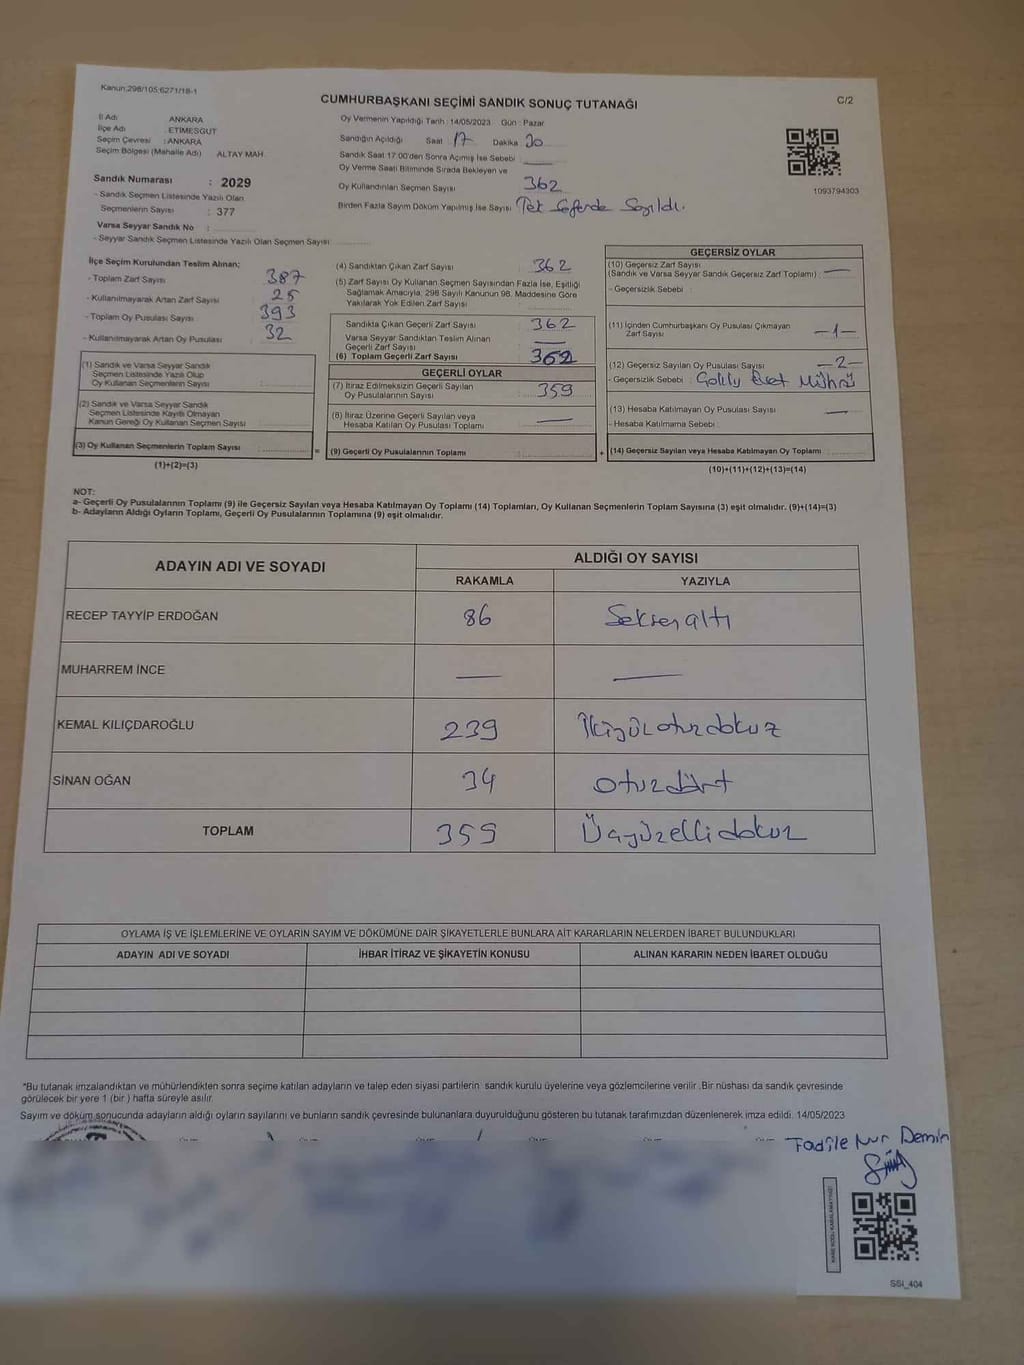 Kanun:298/105;6271/18-1
CUMHURBAŞKANI SEÇİMİ SANDIK SONUÇ TUTANAĞI
C/2
İl Adı ANKARA
İlçe Adı : ETİMESGUT
Seçim Çevresi : ANKARA
Seçim Bölgesi (Mahalle Adı) ALTAY MAH.
Sandık Numarası : 2029
- Sandık Seçmen Listesinde Yazılı Olan
Seçmenlerin Sayısı : 377
Varsa Seyyar Sandık No :
- Seyyar Sandık Seçmen Listesinde Yazılı Olan Seçmen Sayısı :
Oy Vermenin Yapıldığı Tarih : 14/05/2023 Gün : Pazar
Sandığın Açıldığı Saat 17 Dakika 30
Sandık Saat 17:00'den Sonra Açımış İse Sebebi
Oy Verme Saati Bitiminde Sırada Bekleyen ve
Oy Kullandırılan Seçmen Sayısı 362
Birden Fazla Sayım Döküm Yapılmış İse Sayısı Tek Seferde Sayıldı.
1093794303
İlçe Seçim Kurulundan Teslim Alınan;
- Toplam Zarf Sayısı 387
- Kullanılmayarak Artan Zarf Sayısı 25
- Toplam Oy Pusulası Sayısı 393
- Kullanılmayarak Artan Oy Pusulası 32
(1) Sandık ve Varsa Seyyar Sandık
Seçmen Listesinde Yazılı Olup
Oy Kullanan Seçmenlerin Sayısı :
(2) Sandık ve Varsa Seyyar Sandık
Seçmen Listesinde Kayıtlı Olmayan
Kanun Gereği Oy Kullanan Seçmen Sayısı :
(3) Oy Kullanan Seçmenlerin Toplam Sayısı :
(1)+(2)=(3)
=
(4) Sandıktan Çıkan Zarf Sayısı : 362
(5) Zarf Sayısı Oy Kullanan Seçmen Sayısından Fazla İse, Eşitliği
Sağlamak Amacıyla, 298 Sayılı Kanunun 98. Maddesine Göre
Yakılarak Yok Edilen Zarf Sayısı :
Sandıkta Çıkan Geçerli Zarf Sayısı : 362
Varsa Seyyar Sandıktan Teslim Alınan
Geçerli Zarf Sayısı —
(6) Toplam Geçerli Zarf Sayısı : 362
GEÇERLİ OYLAR
(7) İtiraz Edilmeksizin Geçerli Sayılan
Oy Pusulalarının Sayısı : 359
(8) İtiraz Üzerine Geçerli Sayılan veya
Hesaba Katılan Oy Pusulası Toplamı : —
(9) Geçerli Oy Pusulalarının Toplamı :
+
GEÇERSİZ OYLAR
(10) Geçersiz Zarf Sayısı
(Sandık ve Varsa Seyyar Sandık Geçersiz Zarf Toplamı) : —
- Geçersizlik Sebebi :
(11) İçinden Cumhurbaşkanı Oy Pusulası Çıkmayan
Zarf Sayısı —1—
(12) Geçersiz Sayılan Oy Pusulası Sayısı —2—
- Geçersizlik Sebebi : Evet Mührü
(13) Hesaba Katılmayan Oy Pusulası Sayısı —
- Hesaba Katılmama Sebebi :
(14) Geçersiz Sayılan veya Hesaba Katılmayan Oy Toplamı :
(10)+(11)+(12)+(13)=(14)
NOT:
a- Geçerli Oy Pusulalarının Toplamı (9) ile Geçersiz Sayılan veya Hesaba Katılmayan Oy Toplamı (14) Toplamları, Oy Kullanan Seçmenlerin Toplam Sayısına (3) eşit olmalıdır. (9)+(14)=(3)
b- Adayların Aldığı Oyların Toplamı, Geçerli Oy Pusulalarının Toplamına (9) eşit olmalıdır.
ADAYIN ADI VE SOYADI
ALDIĞI OY SAYISI
RAKAMLA YAZIYLA
RECEP TAYYİP ERDOĞAN 86 Seksenaltı
MUHARREM İNCE — —
KEMAL KILIÇDAROĞLU 239 İkiyüzotuzdokuz
SİNAN OĞAN 34 otuzdört
TOPLAM 359 Üçyüzellidokuz
OYLAMA İŞ VE İŞLEMLERİNE VE OYLARIN SAYIM VE DÖKÜMÜNE DAİR ŞİKAYETLERLE BUNLARA AİT KARARLARIN NELERDEN İBARET BULUNDUKLARI
ADAYIN ADI VE SOYADI İHBAR İTİRAZ VE ŞİKAYETİN KONUSU ALINAN KARARIN NEDEN İBARET OLDUĞU
*Bu tutanak imzalandıktan ve mühürlendikten sonra seçime katılan adayların ve talep eden siyasi partilerin sandık kurulu üyelerine veya gözlemcilerine verilir .Bir nüshası da sandık çevresinde
görülecek bir yere 1 (bir ) hafta süreyle asılır.
Sayım ve döküm sonucunda adayların aldığı oyların sayılarını ve bunların sandık çevresinde bulunanlara duyurulduğunu gösteren bu tutanak tarafımızdan düzenlenerek imza edildi. 14/05/2023
Fadile Nur Demir
SSI_404